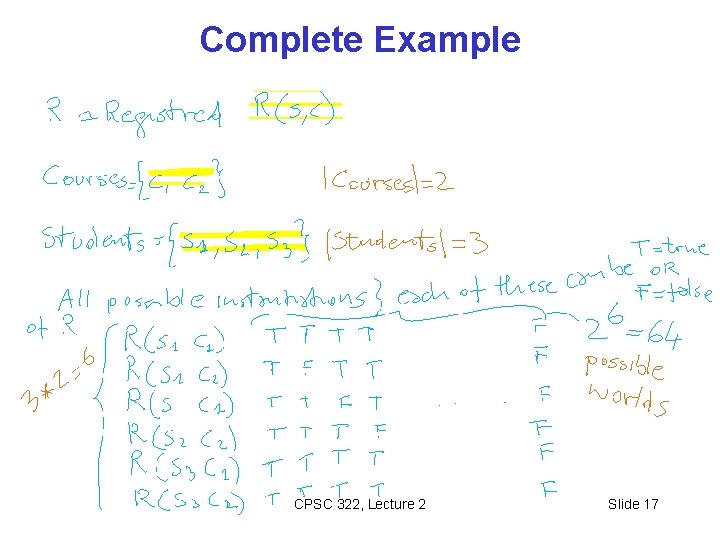 Complete Example
R = Registred R(s,c)
Courses={c1 c2} |Courses|=2
Students={s1, s2, s3} |Students|=3
All possible instantiations} each of these can be T=true OR F=false
of R
3*2=6
R(s1 c1) T T T T F
R(s1 c2) T F T T F
R(s c1) T T F T . . . F
R(s2 c2) T T T F F
R(s3 c1) T T T T F
R(s3 c2) T T T T F
2^6=64
possible
worlds
CPSC 322, Lecture 2
Slide 17